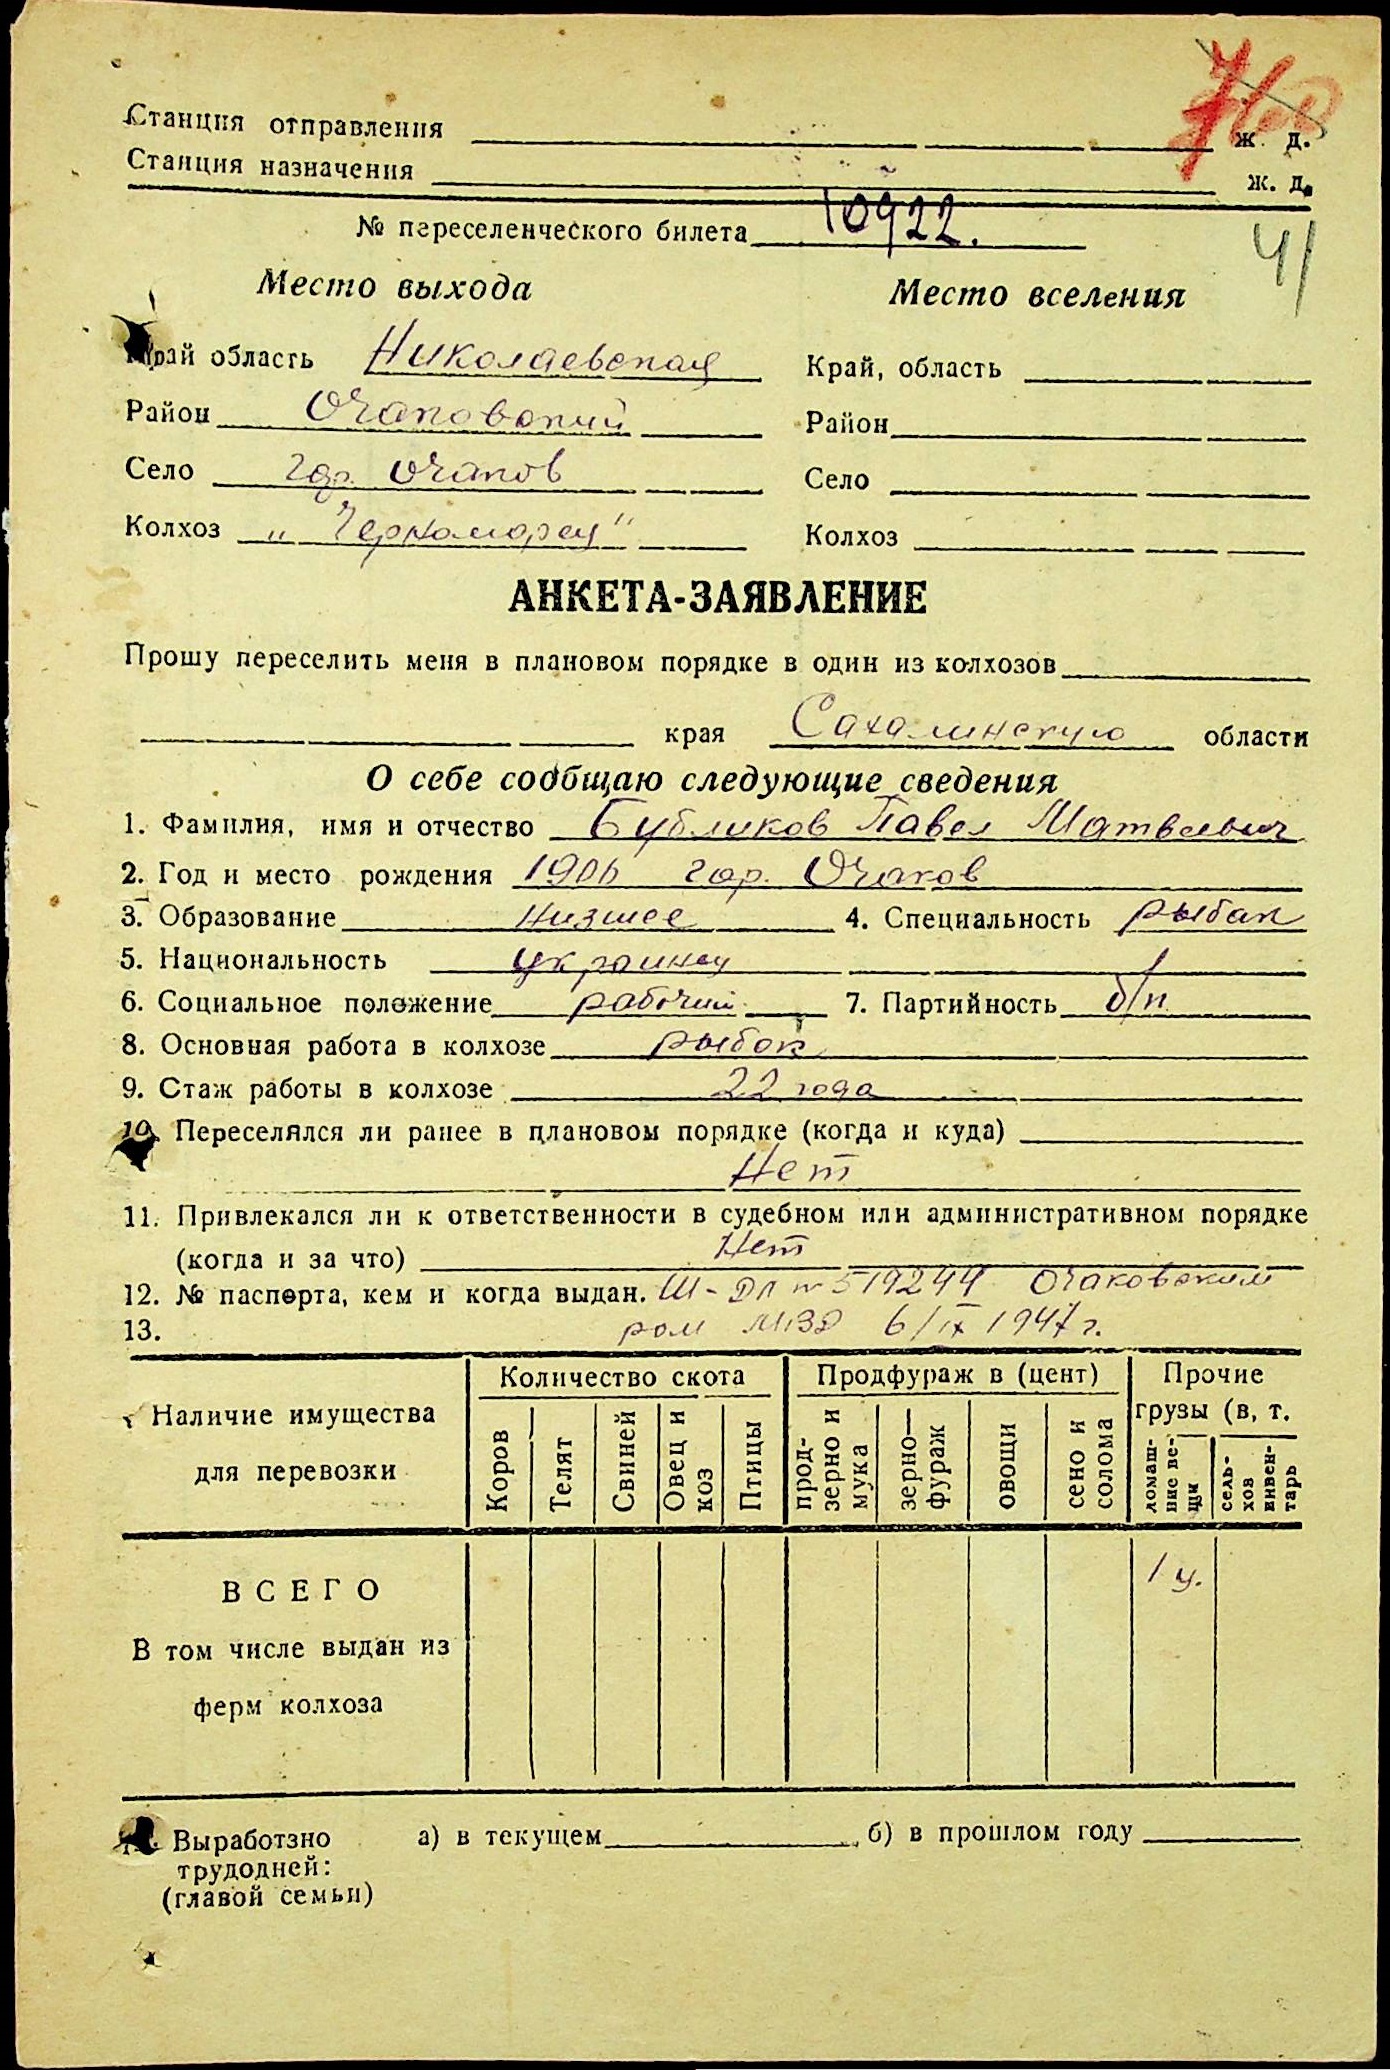 Станция отправления ж. д.
Станция назначения ж. д.
№ переселенческого билета 10922.
41
Место выхода Место вселения
Край область Николаевская Край, область
Район Очаковский Район
Село гор. Очаков Село
Колхоз "Черноморец" Колхоз
АНКЕТА-ЗАЯВЛЕНИЕ
Прошу переселить меня в плановом порядке в один из колхозов
края Сахалинскую области
О себе сообщаю следующие сведения
1. Фамилия, имя и отчество Бубликов Павел Матвеевич
2. Год и место рождения 1906 гор. Очаков
3. Образование низшее 4. Специальность рыбак
5. Национальность украинец
6. Социальное положение рабочий 7. Партийность б/п
8. Основная работа в колхозе рыбак
9. Стаж работы в колхозе 22 года
10. Переселялся ли ранее в плановом порядке (когда и куда)
Нет
11. Привлекался ли к ответственности в судебном или административном порядке
(когда и за что) Нет
12. № паспорта, кем и когда выдан. III-ДЛ № 519244 Очаковским
13. ром МВД 6/IX 1947 г.
Наличие имущества для перевозки
Количество скота
Коров Телят Свиней Овец и коз Птицы
Продфураж в (цент)
прод-зерно и мука зерно-фураж овощи сено и солома
Прочие грузы (в, т.
домаш-ние ве-щи сель-хов инвен-тарь
ВСЕГО 1 ц.
В том числе выдан из
ферм колхоза
Выработзно а) в текущем б) в прошлом году
трудодней:
(главой семьи)